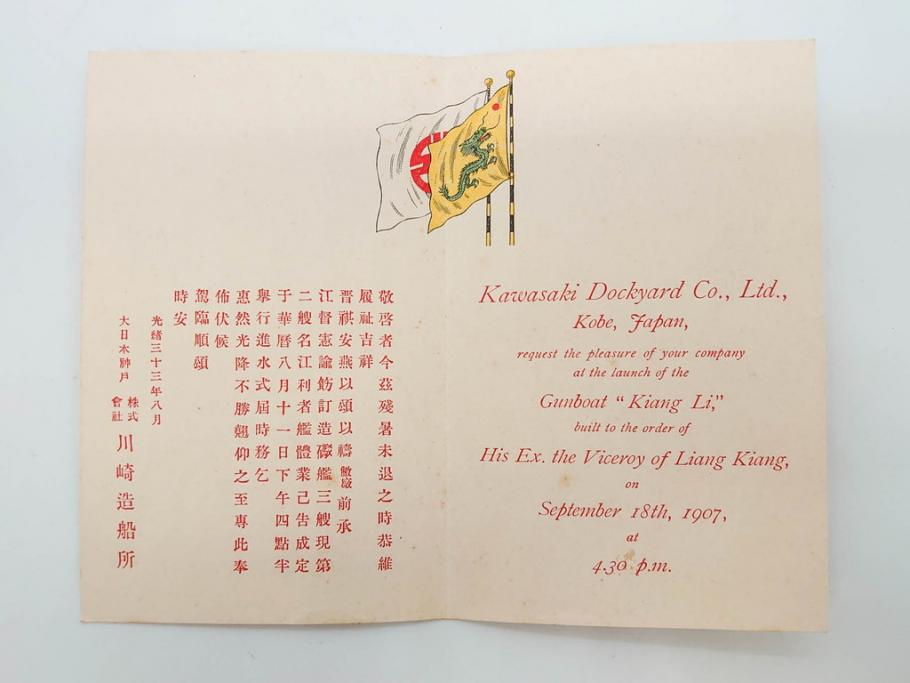 敬啓者今茲殘暑未退之時恭維
履祉吉祥
晋祺安燕以頌以禱敝廠前承
江督憲諭飭訂造礮艦三艘現第
二艘名江利者艦體業己告成定
于華曆八月十一日下午四點半
舉行進水式屆時務乞
惠然光降不勝翹仰之至專此奉
佈伏候
駕臨順頌
時安
光緒三十三年八月
大日本神戶 株式會社 川崎造船所
Kawasaki Dockyard Co., Ltd.,
Kobe, Japan,
request the pleasure of your company
at the launch of the
Gunboat “Kiang Li,”
built to the order of
His Ex. the Viceroy of Liang Kiang,
on
September 18th, 1907,
at
4.30 p.m.